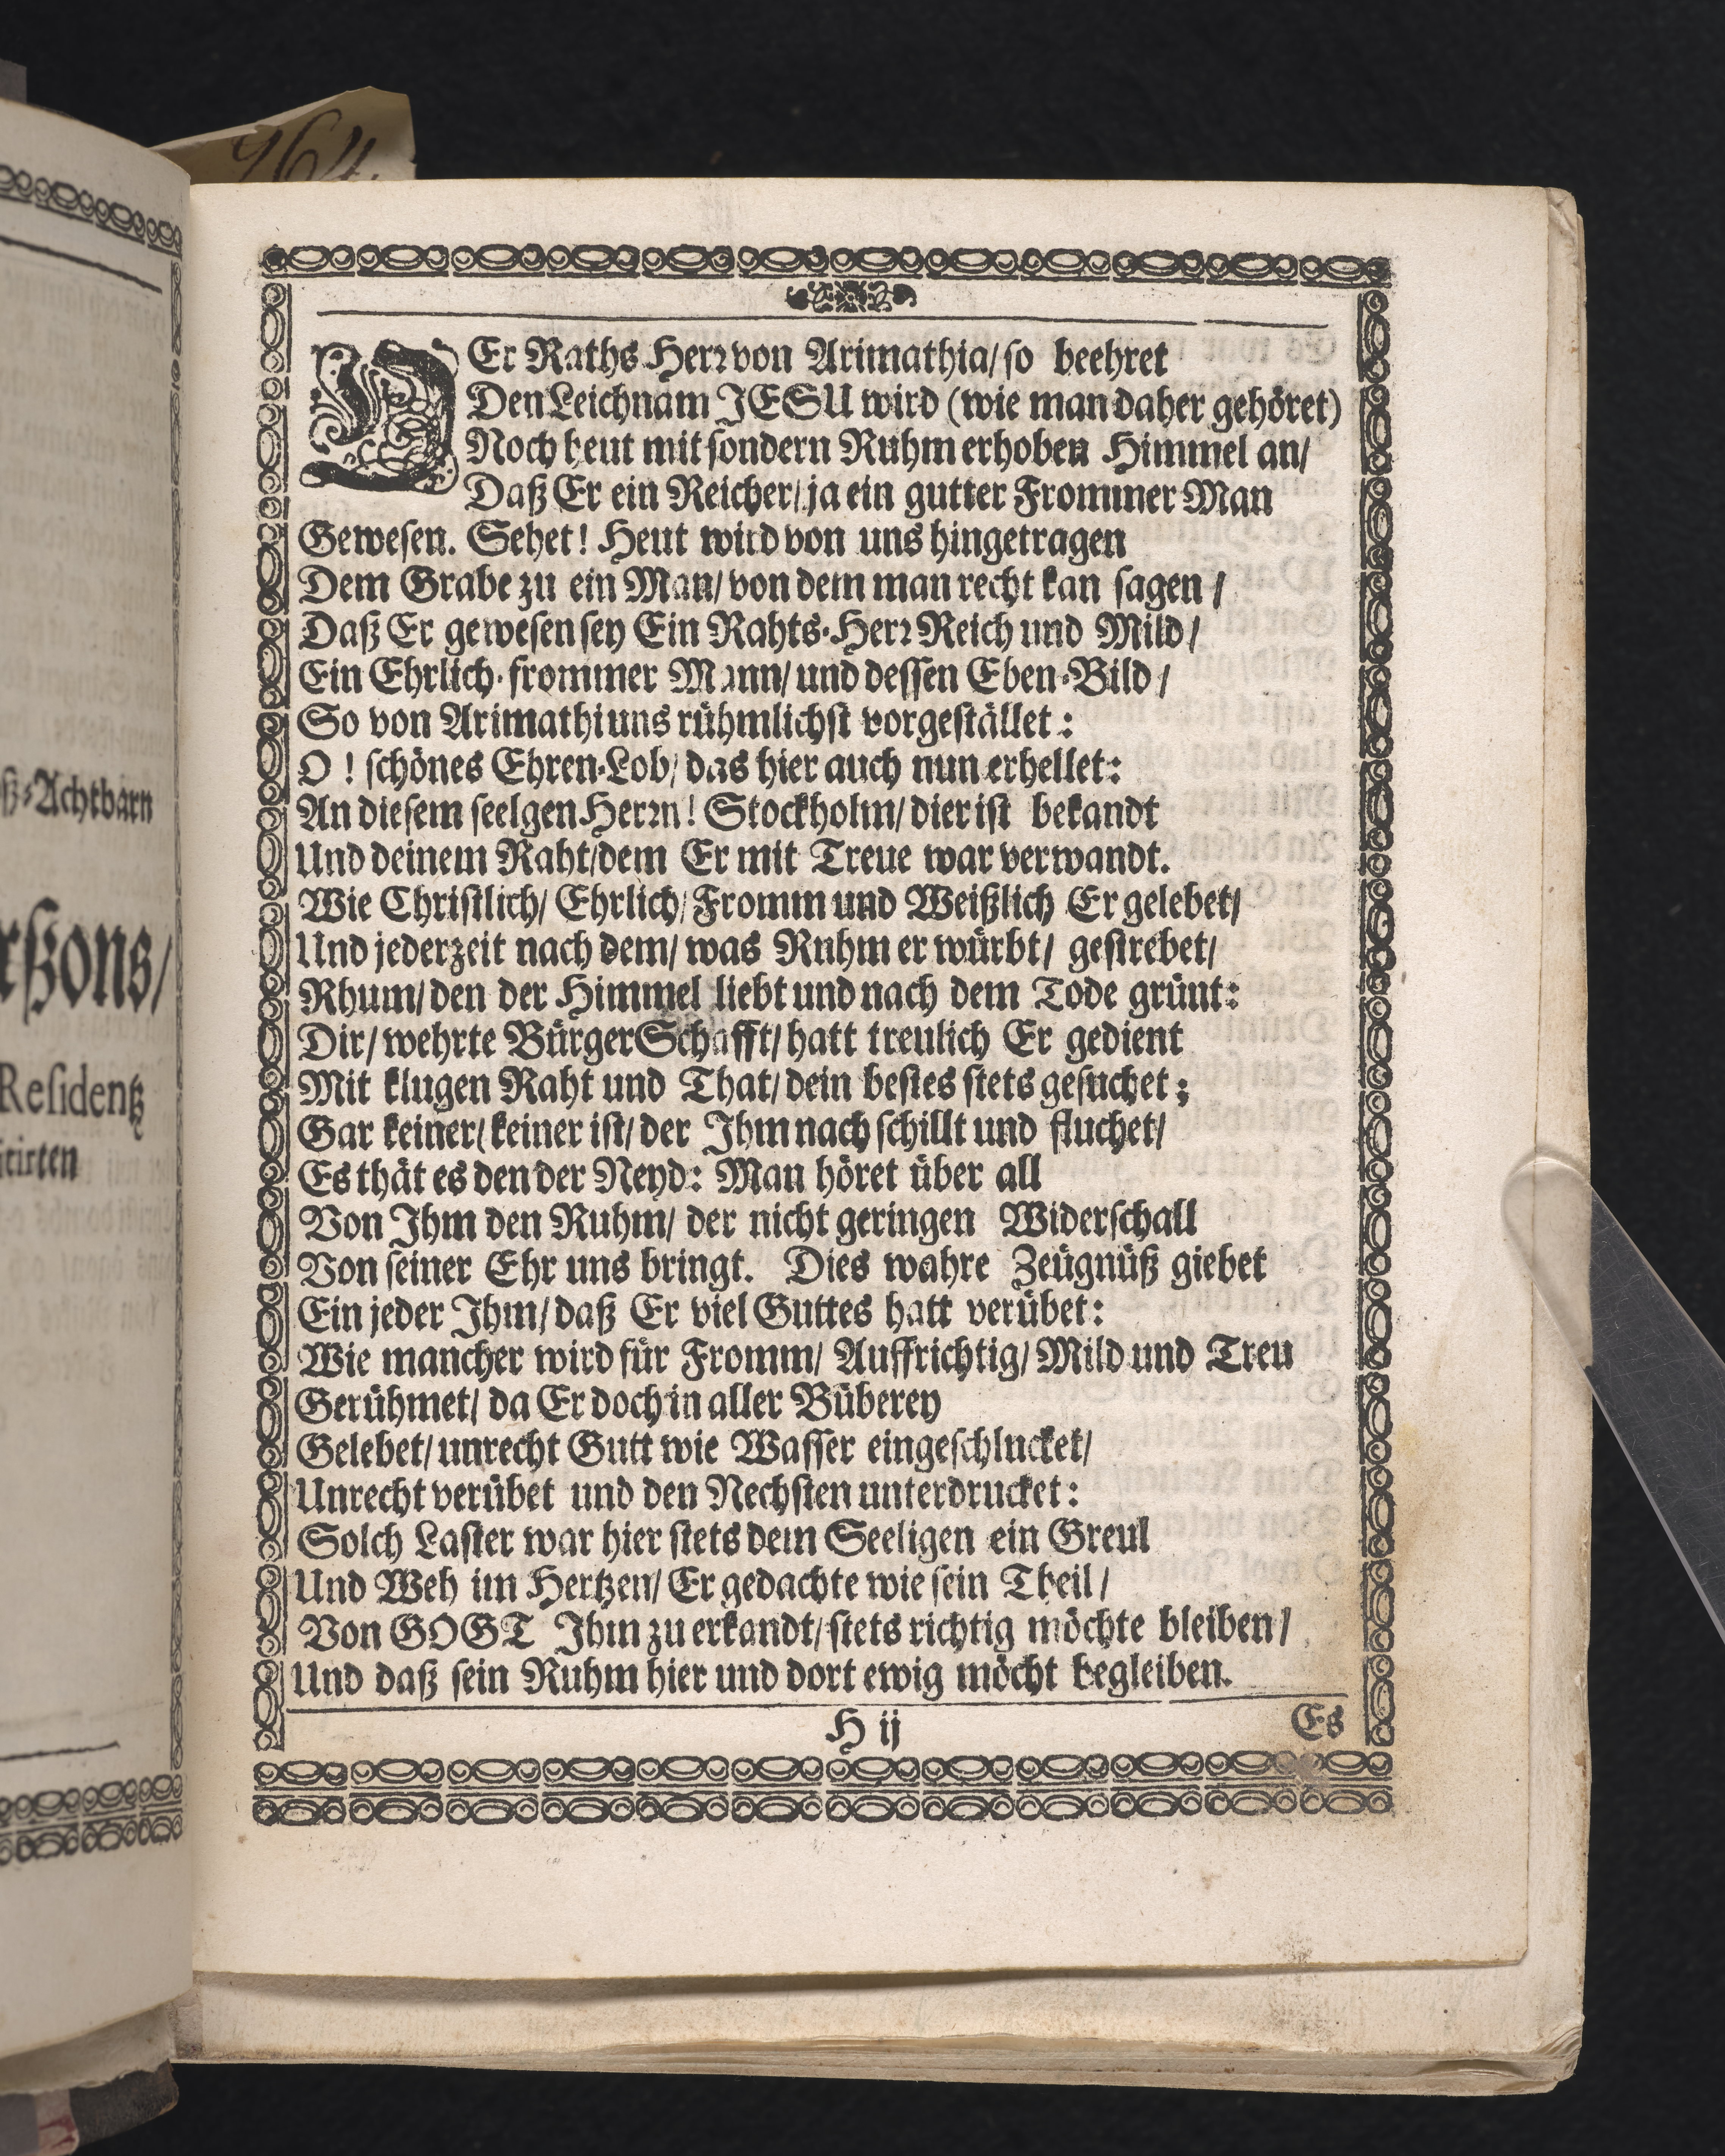 964.
ß-Achtbarn
rßons/
Residentz
DEr Raths-Herr von Arimathia/ so beehret
Den Leichnam JESU wird (wie man daher gehöret)
Noch heut mit sondern Ruhm erhoben Himmel an/
Daß Er ein Reicher/ ja ein gutter Frommer Man
Gewesen. Sehet! Heut wird von uns hingetragen
Dem Grabe zu ein Man/ von dem man recht kan sagen/
Daß Er gewesen sey Ein Rahts-Herr Reich und Mild/
Ein Ehrlich-frommer Mann/ und dessen Eben-Bild/
So von Arimathi uns rühmlichst vorgestället:
O! schönes Ehren-Lob/ das hier auch nun erhellet:
An diesem seelgen Herrn! Stockholm/ dier ist bekandt
Und deinem Raht/ dem Er mit Treue war verwandt.
Wie Christlich/ Ehrlich/ Fromm und Weißlich Er gelebet/
Und jederzeit nach dem/ was Ruhm er würbt/ gestrebet/
Rhum/ den der Himmel liebt und nach dem Tode grünt:
Dir/ wehrte BürgerSchafft/ hatt treulich Er gedient
Mit klugen Raht und That/ dein bestes stets gesuchet;
Gar keiner/ keiner ist/ der Ihm nach schillt und fluchet/
Es thät es den der Neyd: Man höret über all
Von Ihm den Ruhm/ der nicht geringen Widerschall
Von seiner Ehr uns bringt. Dies wahre Zeügnüß giebet
Ein jeder Ihm/ daß Er viel Guttes hatt verübet:
Wie mancher wird für Fromm/ Auffrichtig/ Mild und Treu
Gerühmet/ da Er doch in aller Büberey
Gelebet/ unrecht Gutt wie Wasser eingeschlucket/
Unrecht verübet und den Nechsten unterdrucket:
Solch Laster war hier stets dem Seeligen ein Greul
Und Weh im Hertzen/ Er gedachte wie sein Theil/
Von GOGT Ihm zu erkandt/ stets richtig möchte bleiben/
Und daß sein Ruhm hier und dort ewig möcht begleiben.
H ij
Es